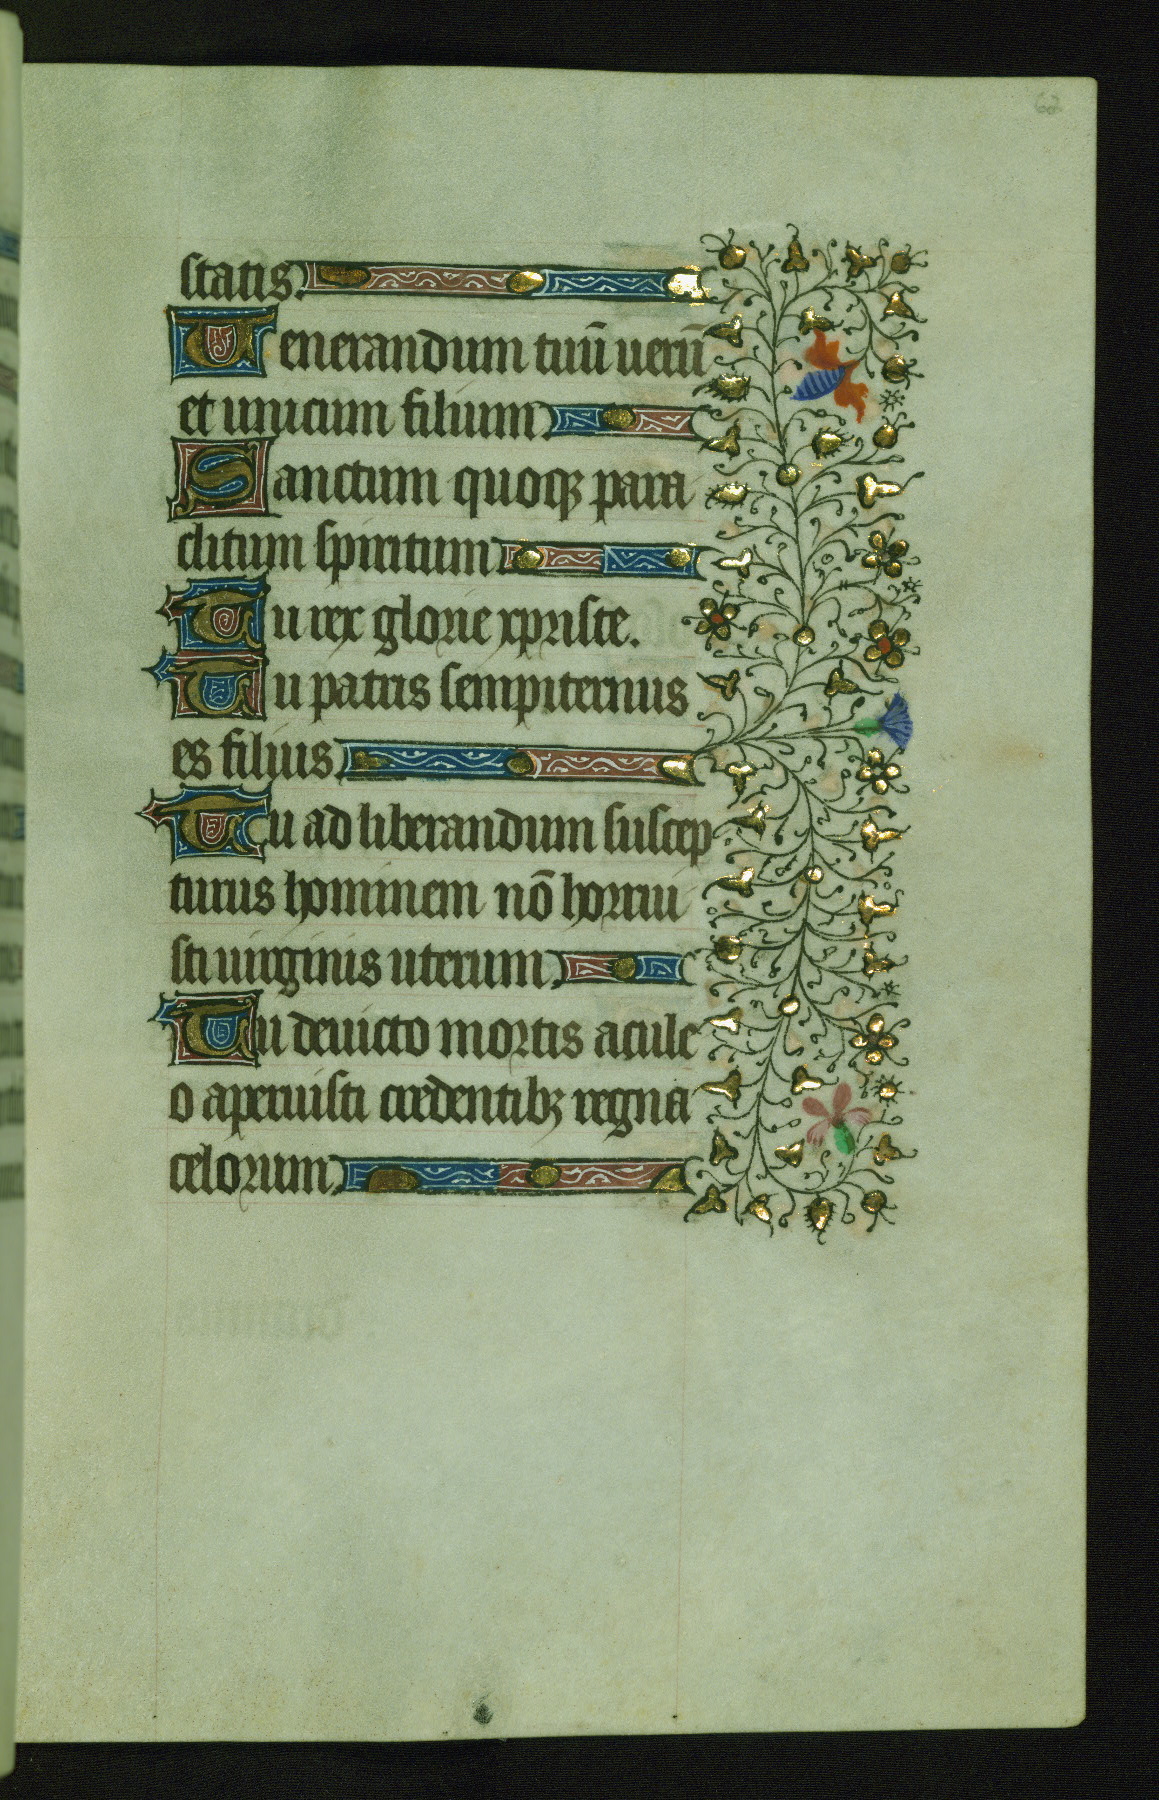 62
statis.
Uenerandum tuū uerū
et unicum filium
Sanctum quoqꝫ para
clitum spiritum
Tu rex glorie xpriste.
Tu patris sempiternus
es filius
Tu ad liberandum suscep
turus hominem nō horrui
sti uirginis uterum.
Tu deuicto mortis acule
o aperuisti credentibꝫ regna
celorum.